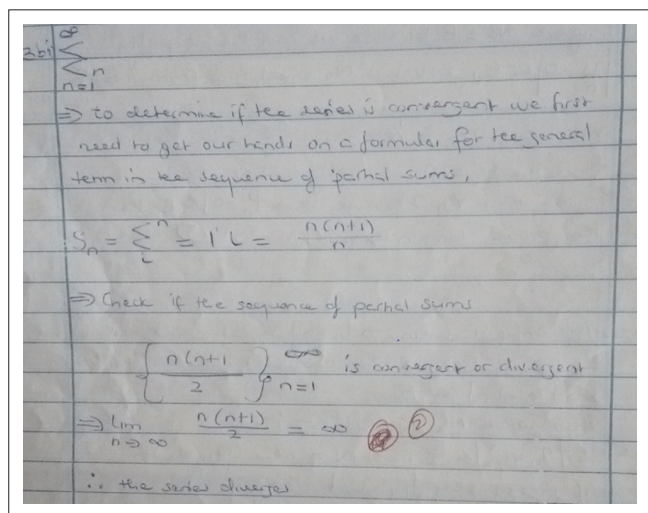 3bi) ∞
∑ n
n=1
⇒ to determine if the series is convergent we first
need to get our hands on a formular for the general
term in the sequence of partial sums,
Sₙ = ∑ⁿ = 1 i = n(n+1)/n
i
⇒ Check if the sequence of partial sums
{ n(n+1 / 2 }∞ n=1 is convergent or divergent
⇒ lim n→∞ n(n+1)/2 = ∞ ②
∴ the series diverges